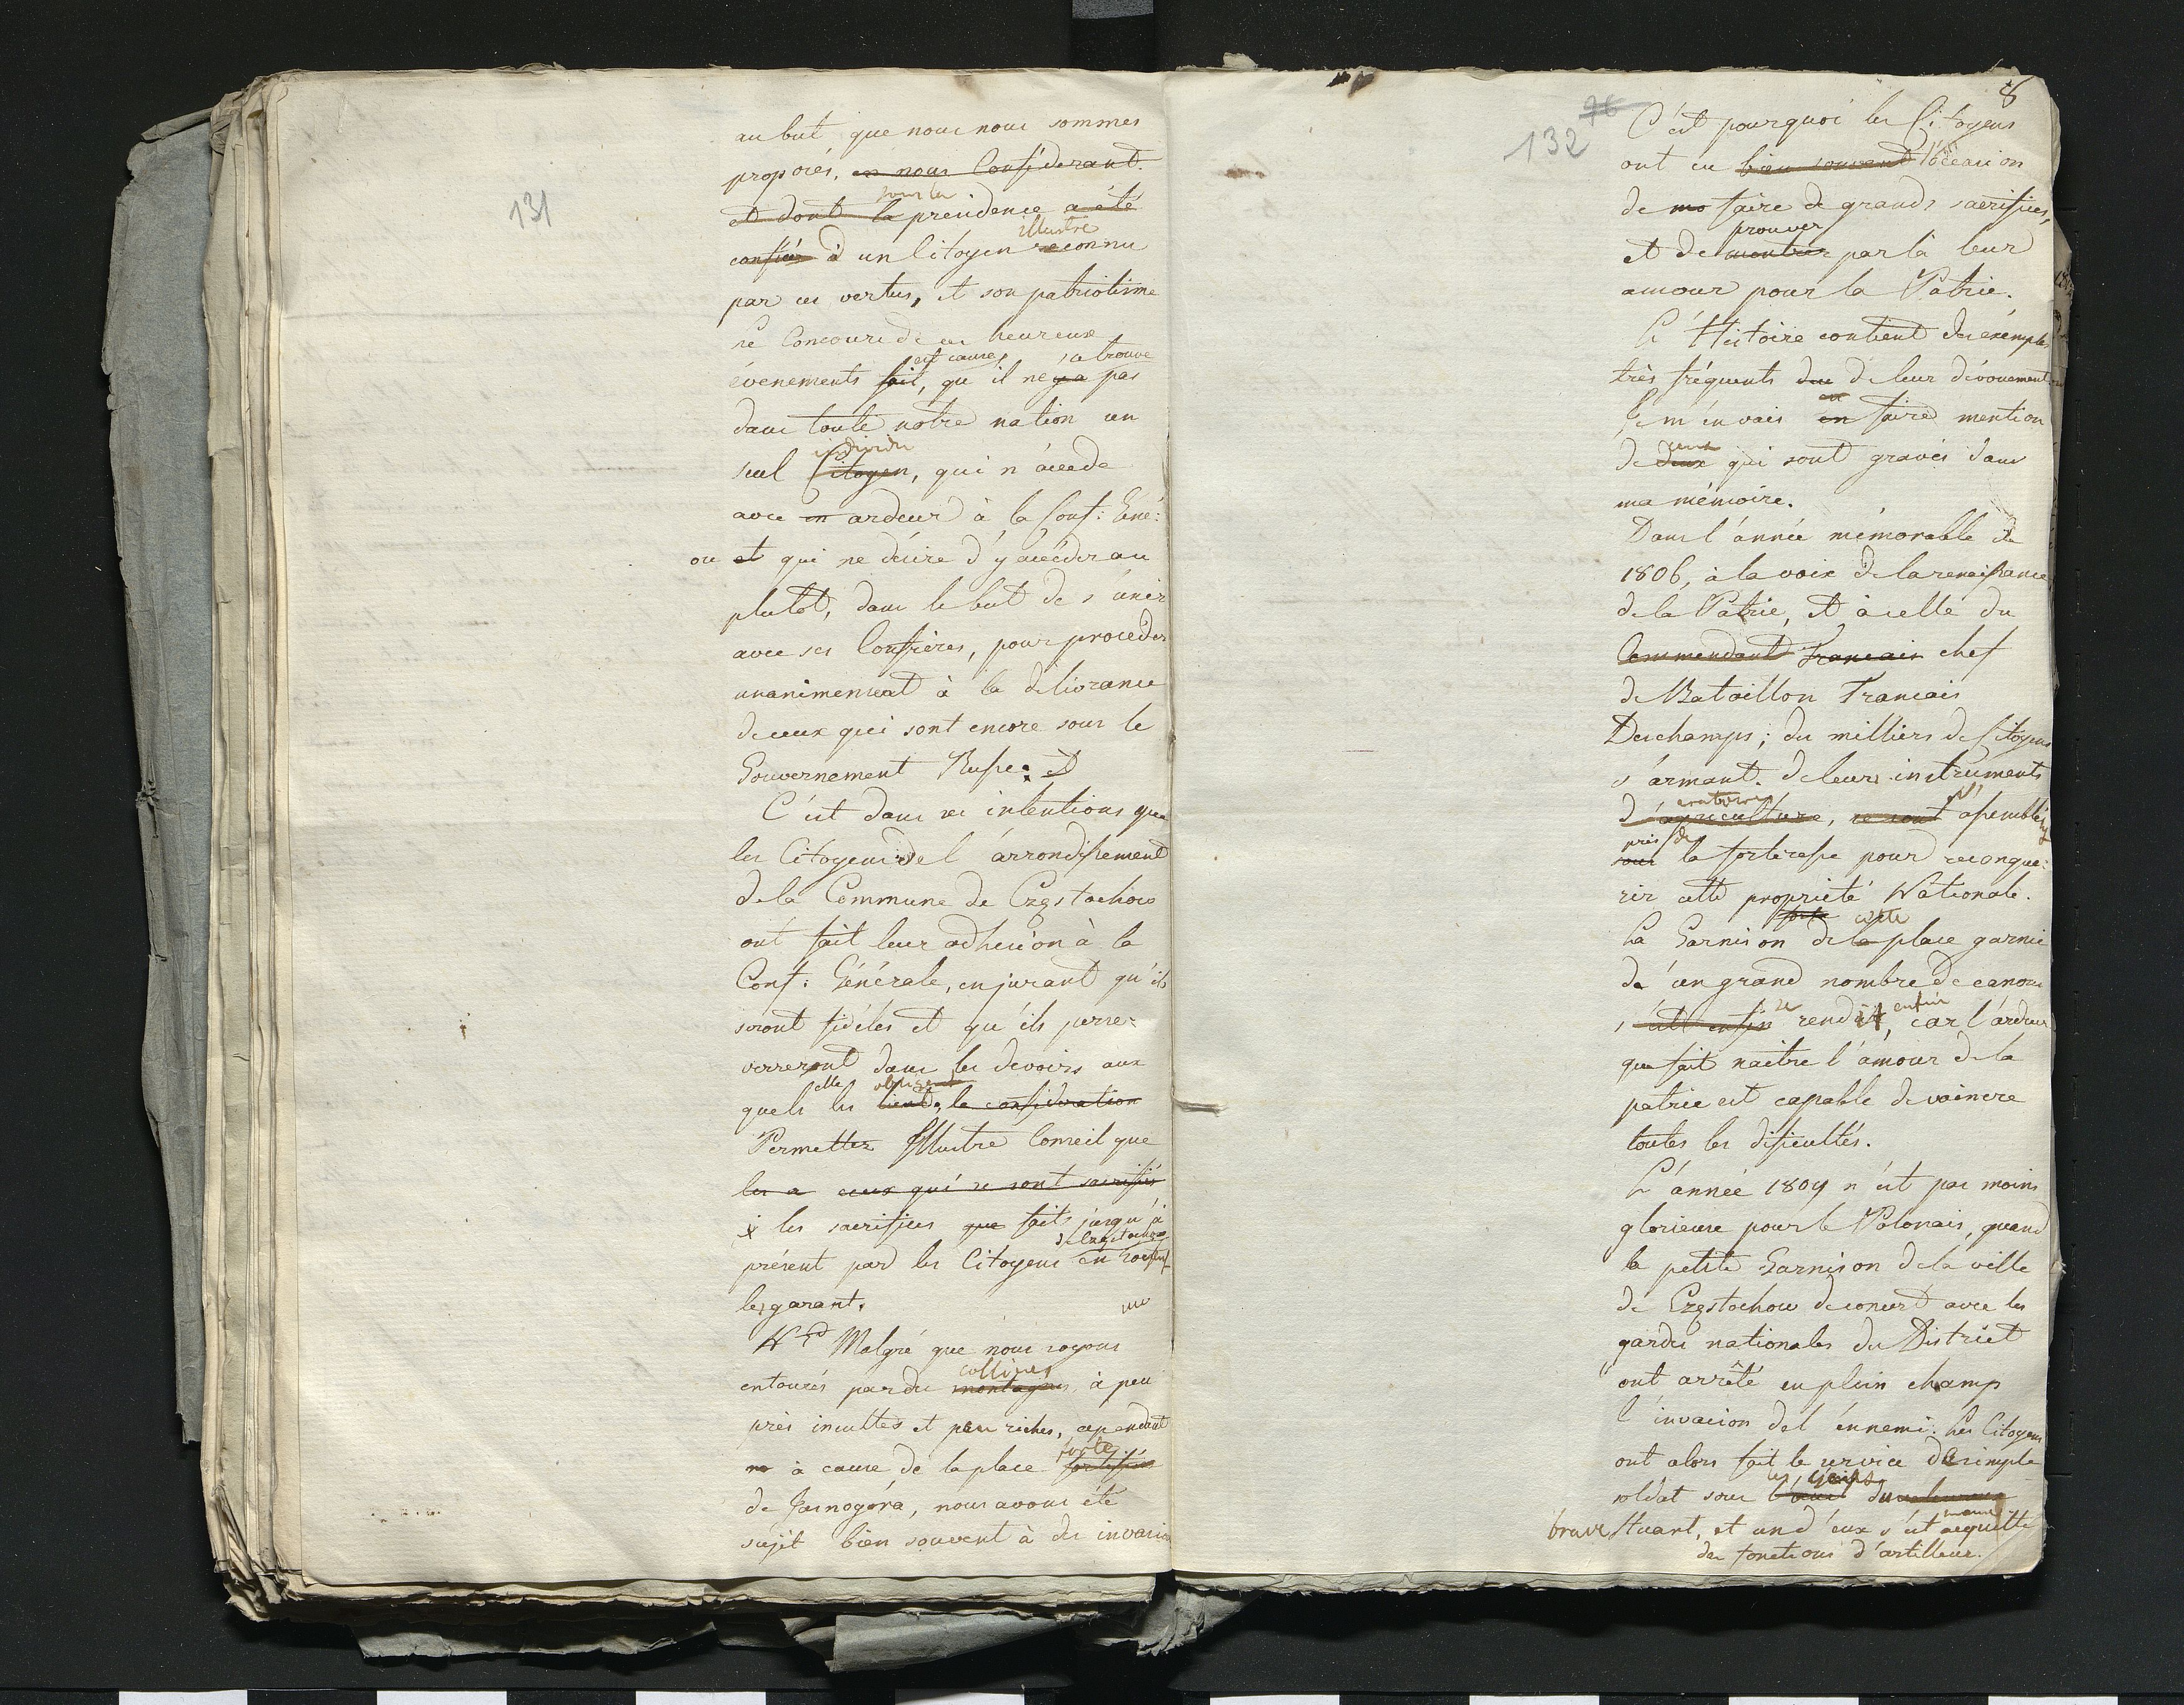 131
au but que nous nous sommes
proposés, en nous Considerant.
sous la
et dont la presidence a été
illustre
confiée à un Citoyen reconnu
par ces vertus, et son patriotisme
Le Concours de ces heureux
est cause, se trouve
évenements fait, qu'il ne ya pas
dans toute notre nation un
individu
seul Citoyen, qui n'accede
avec en ardeur à la Conf: Géné:
ou et qui ne désire d'y accéder au
plutôt, dans le but de s'unir
avec ses Confrères, pour procéder
unanimement à la délivrance
de ceux qui sont encore sous le
Gouvernement Russe. et
C'est dans ces intentions que
les Citoyens de l'arrondissement
de la Commune de Czestochow
ont fait leur adhesion à la
Conf: Générale, en jurant qu'ils
seront fidéles et qu'ils perse-
verreront dans les devoirs aux
elle obligent
quels les la confideration
Permettez Illustre Conseil que
les a ceux qui se sont sacrifiés
les sacrifices que faits jusqu'à
de Czestochow
présent par les Citoyens en soient
les garant.
Malgré que nous soyons
collines
entourés par des montagnes à peu
près incultes et peu riches, cependant
forte
à cause de la place fortifiée
de Jasnogóra, nous avons été
sujet bien souvent à des invasions
8
76
132
C'est pourquoi les Citoyens
ont eu bien souvent l'occasion
de mo faire de grands sacrifices,
prouver
et de montrer par là leur
amour pour la Patrie.
L'Histoire contient des exemples
très fréquents due de leur dévouement
Je m'en vais en faire mention
ceux
de deux qui sont gravés dans
ma mémoire.
Dans l'année mémorable de
1806, à la voix de la renaissance
de la Patrie, et à celle du
Commendant Francais chef
de Bataillon Francais
Deschamps; des milliers de Citoyens
s'armant de leurs instruments
aratoires
d'agriculture, se sont assemblés
près de
sous la forteresse pour reconque-
rir cette proprieté Nationale.
cette
La Garnison de la place garnie
de un grand nombre de canons
se enfin
s'est enfin rendit, car l'ardeur
que fait naitre l'amour de la
patrie est capable de vaincre
toutes les dificultés.
L'année 1809 n'est pas moins
glorieuse pour le Polonais, quand
la petite Garnison de la ville
de Czestochow de concert avec les
gardes nationales du District
ont arrêté en plein champ
l'invasion de l'ennemi. Les Citoyens
ont alors fait le service de simple
les yeux
soldat sous du
même
brave Stuart, et un d'eux s'est acquitté
des fonctions d'artilleur.